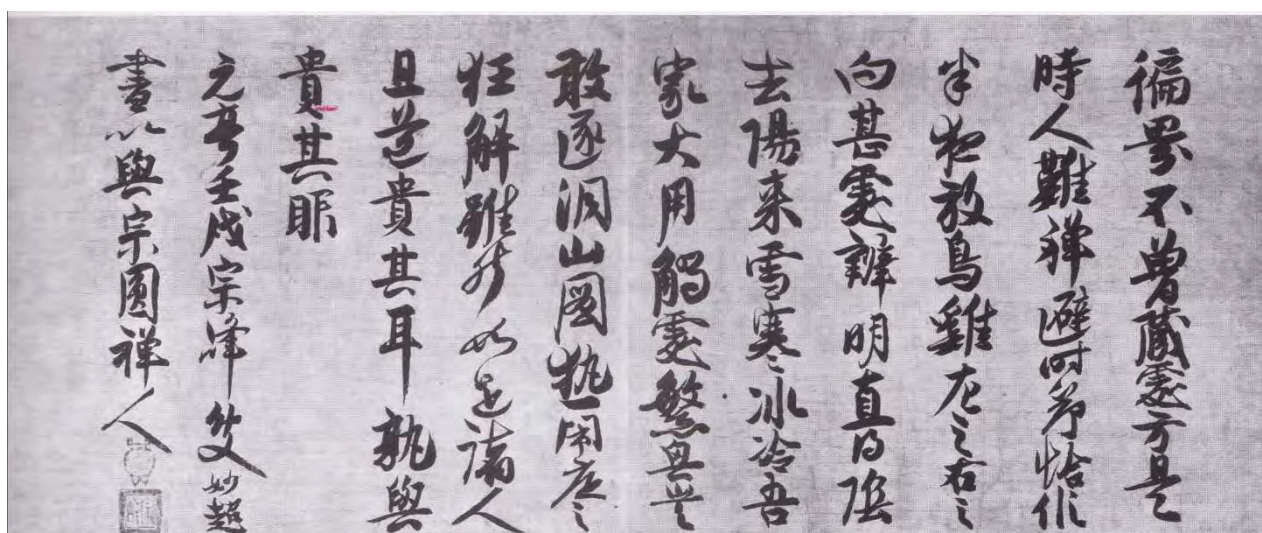 偏界不曽蔵処方是
時人難禅避時節恰似
半夜放烏雞左之右之
向甚処辨明直得陰
去陽来雪寒冰冷吾
家大用触処
敢逐洞山
狂解雖然如是諸人
且道貴其耳孰與
貴其眼
元亨壬戌宗峰叟妙超
書以與宗圓禅人